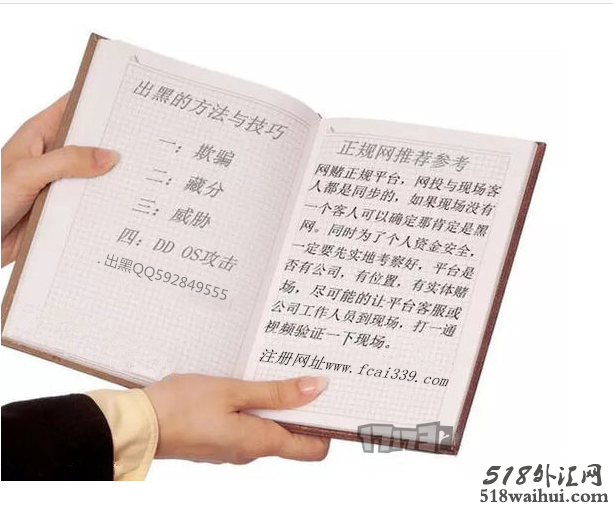 出黑的方法与技巧
一：欺骗
二：藏分
三：威胁
四：DD OS攻击
.出黑QQ592849555
正规网推荐参考
网赌正规平台，网投与现场客
人都是同步的，如果现场没有
一个客人可以确定那肯定是黑
网。同时为了个人资金安全，
一定要先实地考察好，平台是
否有公司，有位置，有实体赌
场，尽可能的让平台客服或
公司工作人员到现场，打一通
视频验证一下现场。
注册网址www.fcai339.com
17173
518外汇网
518waihui.com